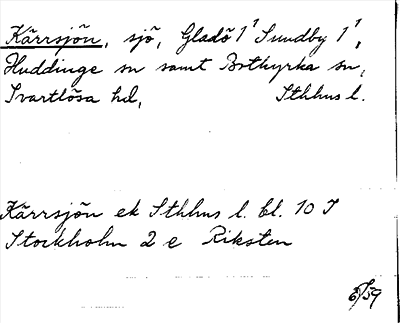 Kärrsjön, sjö, Gladö 1¹ Sundby 1¹,
Huddinge sn samt Botkyrka sn,
Svartlösa hd, Sthlms l.
Kärrsjön ek Sthlms l. bl. 10 I
Stockholm 2 e Riksten